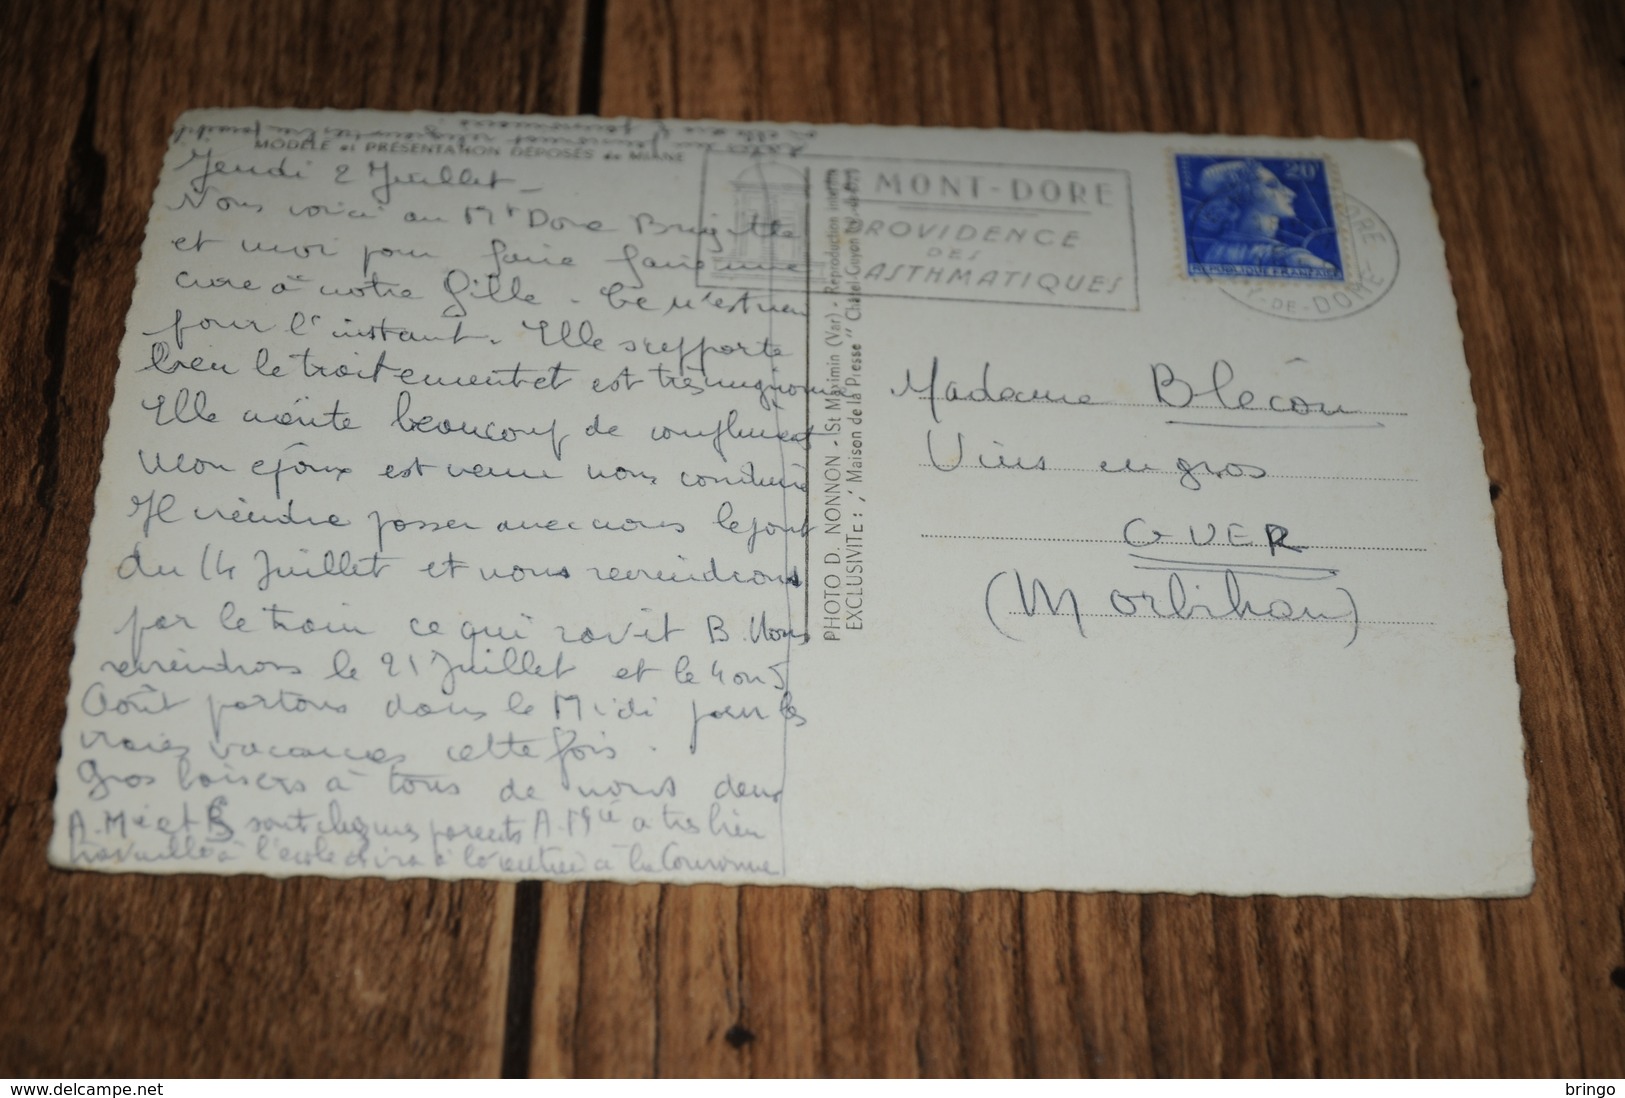 MODELE et PRÉSENTATION DÉPOSÉS de
Jeudi 2 Juillet -
Nous voici au Mt Dore Brigitte
et moi pour faire faire une
cure à notre fille - Ce n'est rien
pour l'instant. Elle supporte
bien le traitement et est très mignonne
Elle mérite beaucoup de compliments
Mon époux est venu nous conduire
Il viendra passer avec nous le pont
du 14 Juillet et nous reviendrons
par le train ce qui ravit B. Nous
reviendrons le 21 Juillet et le 4 ou 5
Août partons dans le Midi pour les
vraies vacances cette fois.
Gros baisers à tous de nous deux
A. Mie et B sont chez mes parents A. Mie a très bien
travaillé à l'école et ira à la rentrée à la Couronne
PHOTO D. NONNON - St Maximin (Var) - Reproduction interdite
EXCLUSIVITE : "Maison de la Presse" Châtel-Guyon
MONT-DORE
PROVIDENCE
DES
ASTHMATIQUES
20F
REPUBLIQUE FRANÇAISE
DORE
-DE-DÔME
Madame Blécon
Vins en gros
GUER
(Morbihan)
www.delcampe.net
bringo